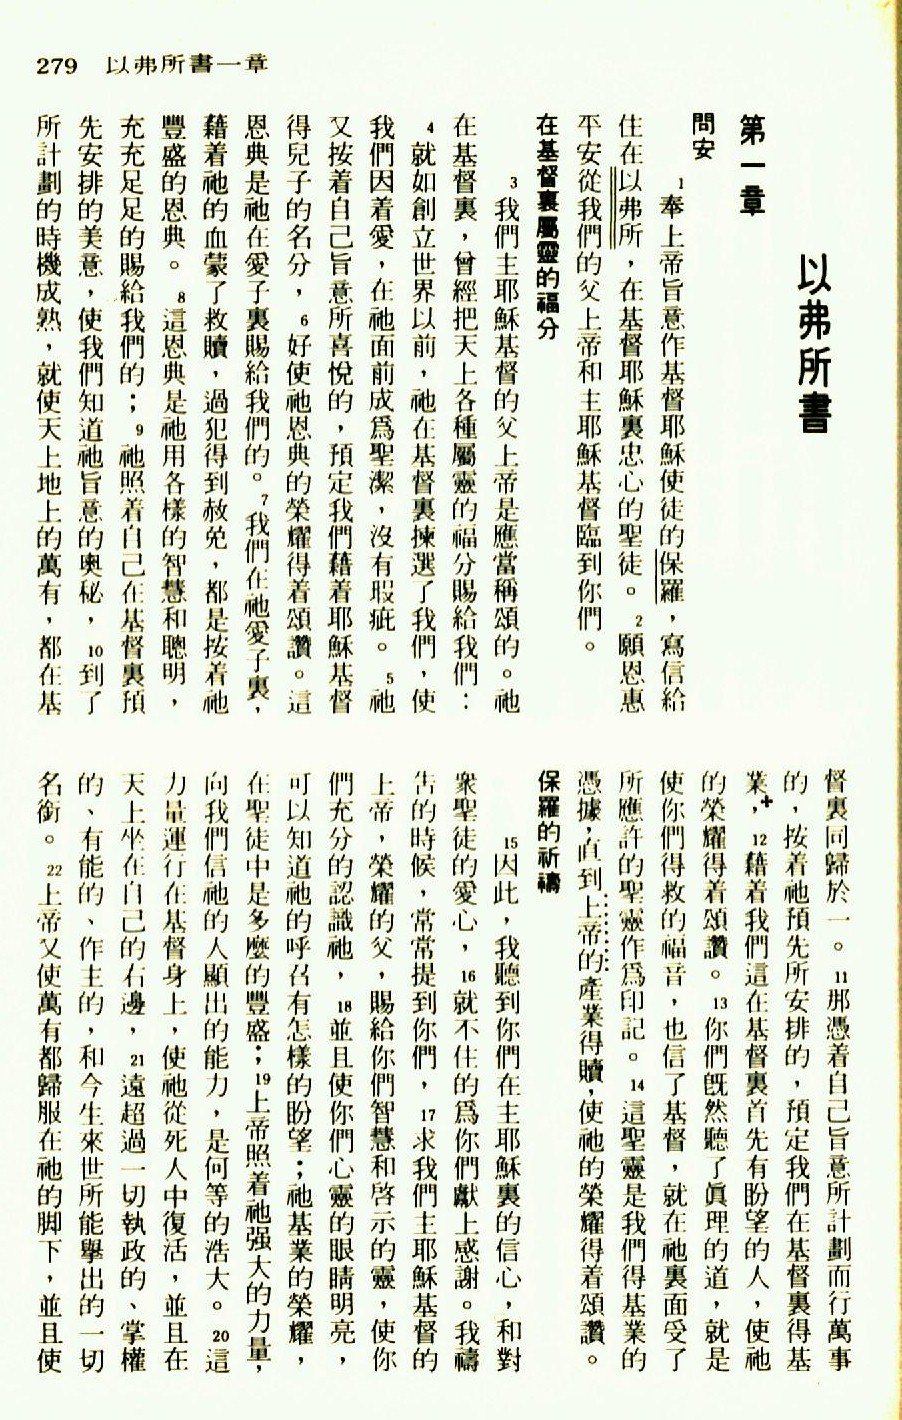 279 以弗所書一章
以弗所書
第一章
問安
1奉上帝旨意作基督耶穌使徒的保羅，寫信給
住在以弗所，在基督耶穌裏忠心的聖徒。2願恩惠
平安從我們的父上帝和主耶穌基督臨到你們。
在基督裏屬靈的福分
3我們主耶穌基督的父上帝是應當稱頌的。祂
在基督裏，曾經把天上各種屬靈的福分賜給我們：
4就如創立世界以前，祂在基督裏揀選了我們，使
我們因着愛，在祂面前成爲聖潔，沒有瑕疵。5祂
又按着自己旨意所喜悅的，預定我們藉着耶穌基督
得兒子的名分，6好使祂恩典的榮耀得着頌讚。這
恩典是祂在愛子裏賜給我們的。7我們在祂愛子裏，
藉着祂的血蒙了救贖，過犯得到赦免，都是按着祂
豐盛的恩典。8這恩典是祂用各樣的智慧和聰明，
充充足足的賜給我們的；9祂照着自己在基督裏預
先安排的美意，使我們知道祂旨意的奧秘，10到了
所計劃的時機成熟，就使天上地上的萬有，都在基
督裏同歸於一。11那憑着自己旨意所計劃而行萬事
的，按着祂預先所安排的，預定我們在基督裏得基
業，12藉着我們這在基督裏首先有盼望的人，使祂
的榮耀得着頌讚。13你們旣然聽了眞理的道，就是
使你們得救的福音，也信了基督，就在祂裏面受了
所應許的聖靈作爲印記。14這聖靈是我們得基業的
憑據，直到上帝的產業得贖，使祂的榮耀得着頌讚。
保羅的祈禱
15因此，我聽到你們在主耶穌裏的信心，和對
衆聖徒的愛心，16就不住的爲你們獻上感謝。我禱
告的時候，常常提到你們，17求我們主耶穌基督的
上帝，榮耀的父，賜給你們智慧和啓示的靈，使你
們充分的認識祂，18並且使你們心靈的眼睛明亮，
可以知道祂的呼召有怎樣的盼望；祂基業的榮耀，
在聖徒中是多麼的豐盛；19上帝照着祂强大的力量，
向我們信祂的人顯出的能力，是何等的浩大。20這
力量運行在基督身上，使祂從死人中復活，並且在
天上坐在自己的右邊，21遠超過一切執政的、掌權
的、有能的、作主的，和今生來世所能舉出的一切
名銜。22上帝又使萬有都歸服在祂的脚下，並且使